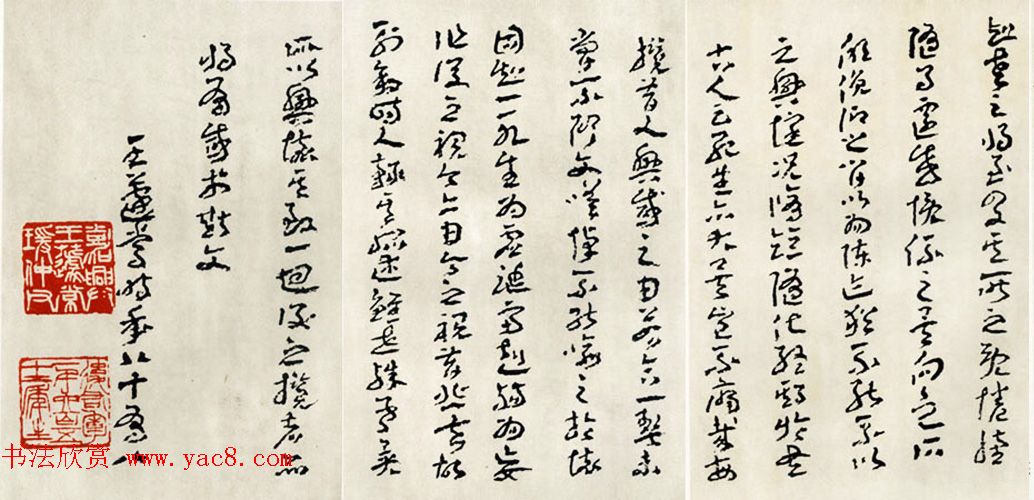 知老之將至及其所之既惓情
隨事遷感慨係之矣向之所
欣俛仰之間以為陳迹猶不能不以
之興懷況脩短隨化終期於盡
古人云死生亦大矣豈不痛哉每
攬昔人興感之由若合一契未
嘗不臨文嗟悼不能喻之於懷
固知一死生為虛誕齊彭殤為妄
作後之視今亦由今之視昔悲夫故
列敘時人錄其所述雖世殊事異
所以興懷其致一也後之攬者亦
將有感於斯文
王蘧常時年八十有
嘉興王蘧常瑗仲父
书法欣赏 www.yac8.com